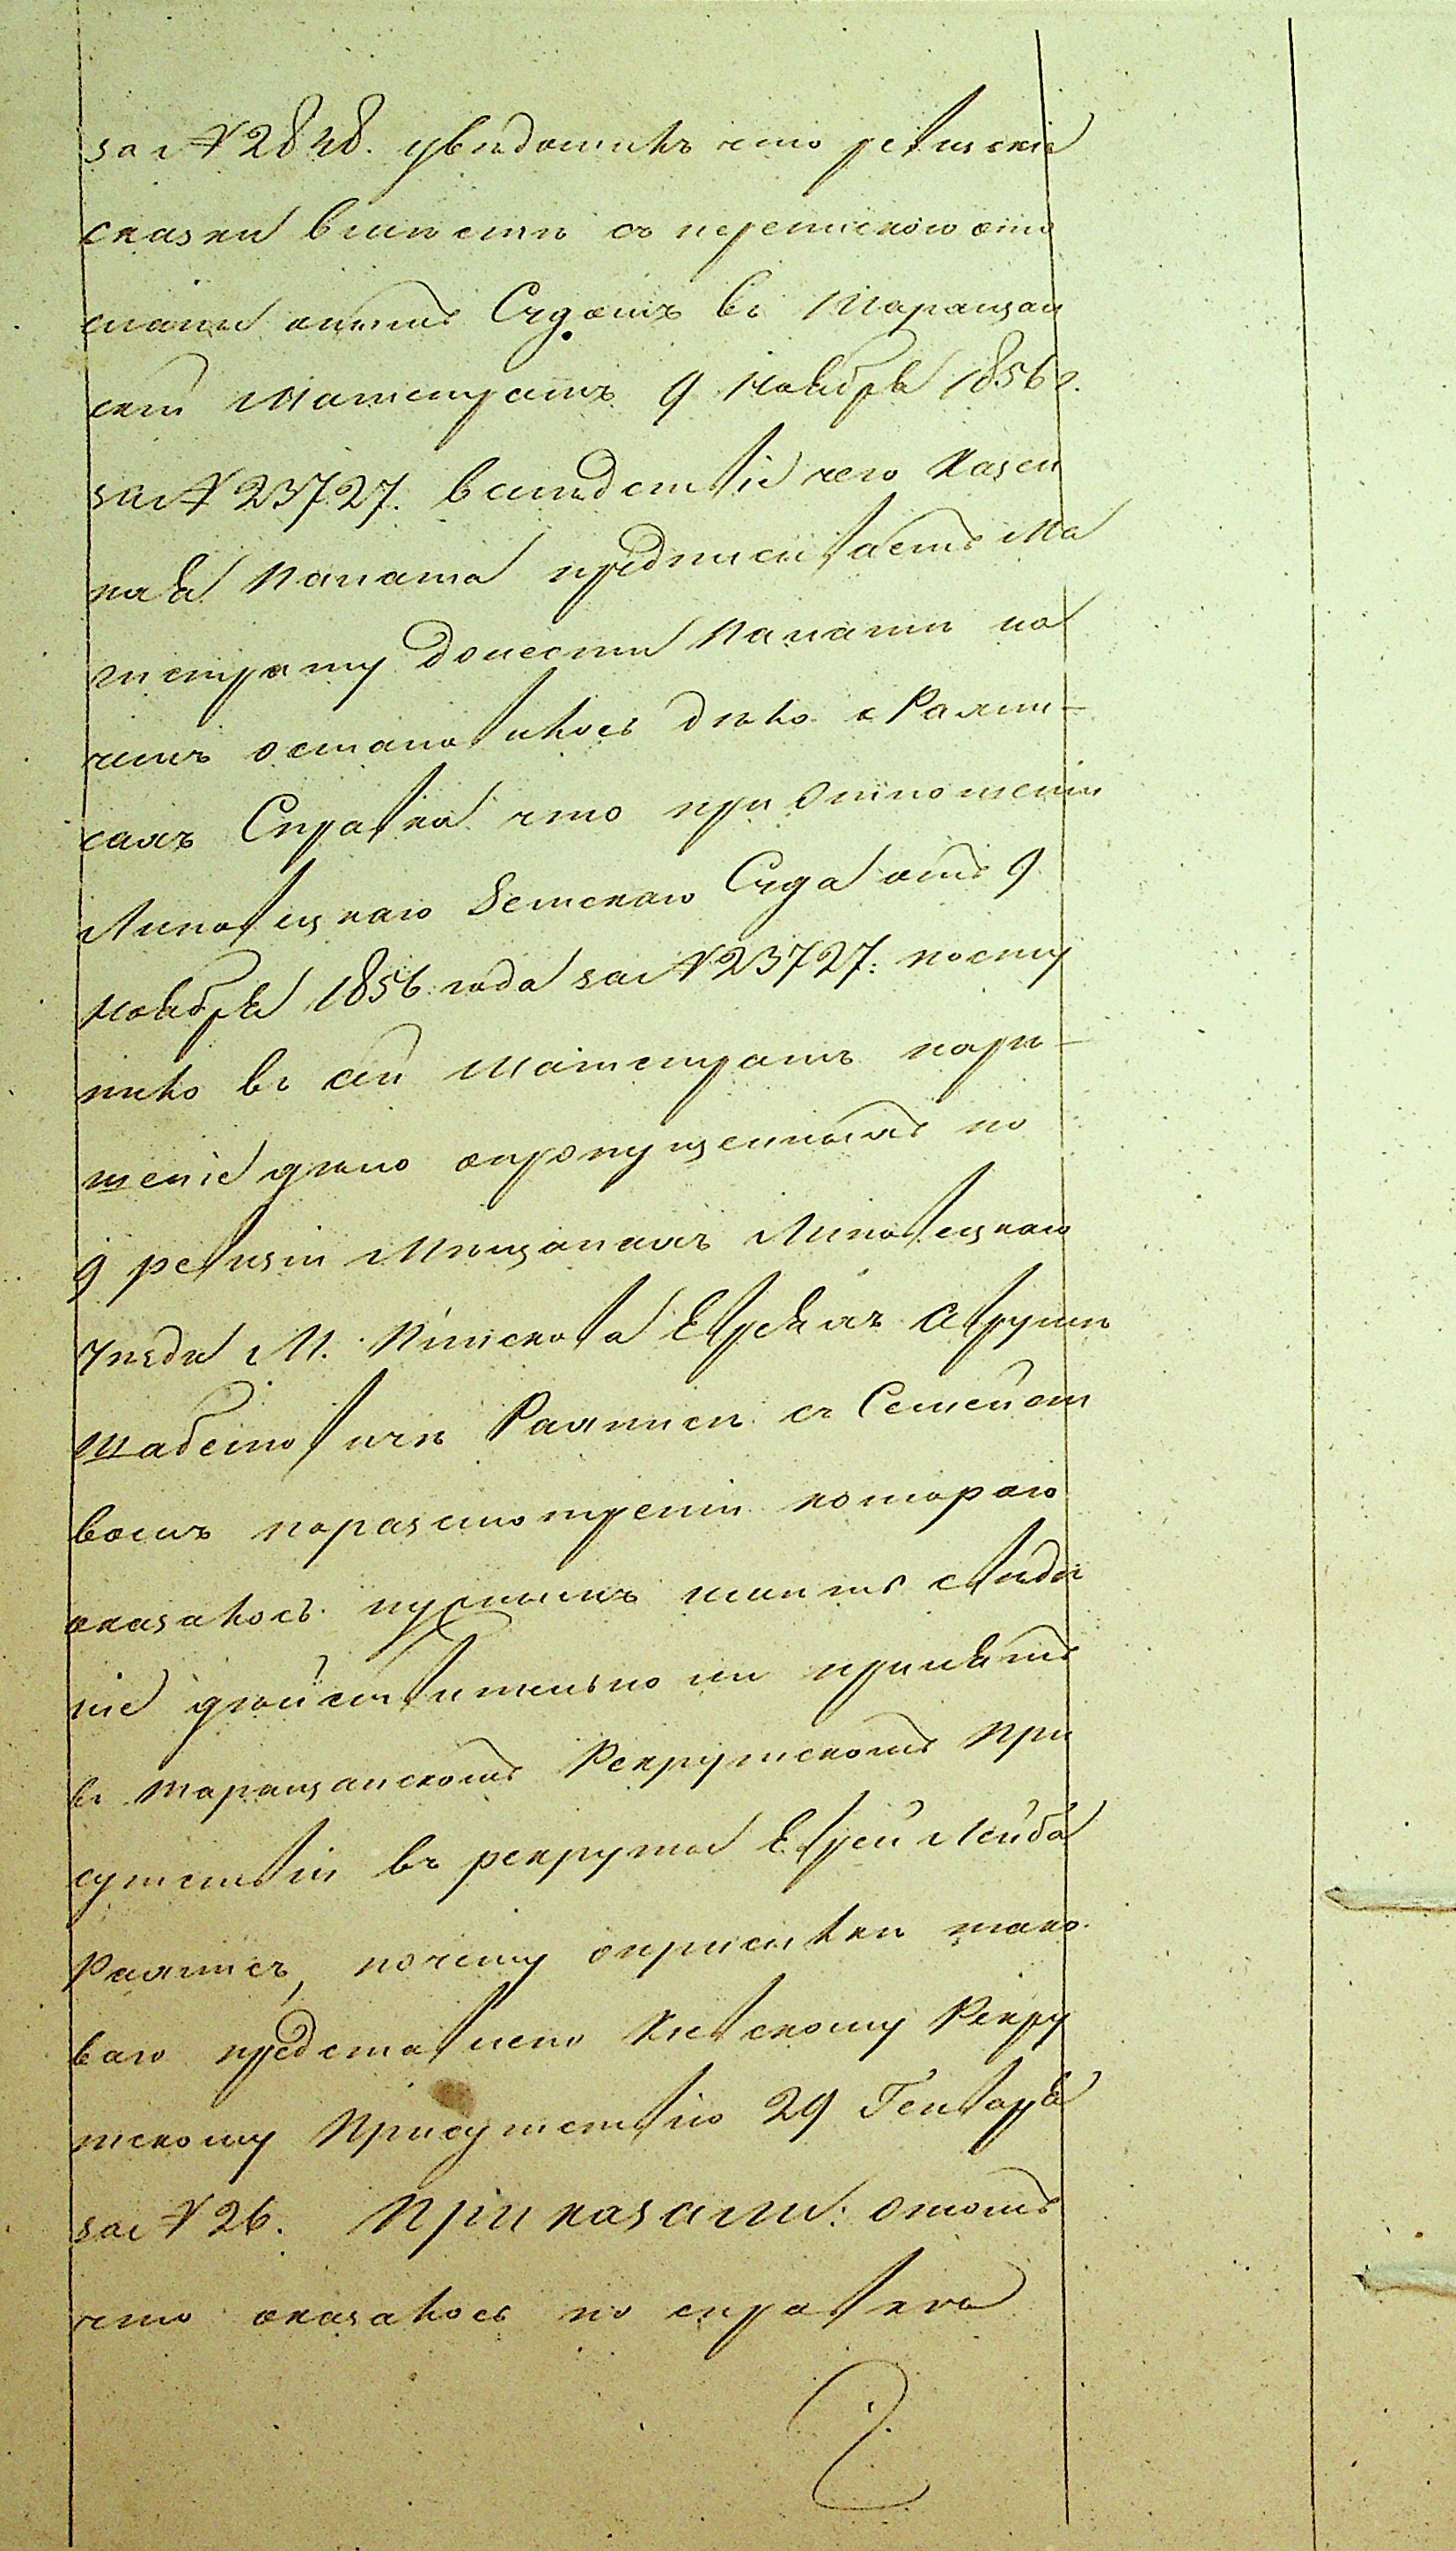 за № 2848. увѣдомилъ что ревизскіе
сказки вмѣстѣ съ перепискою ото
сланы онымъ Судомъ въ Таращан
скій Магистратъ 9 Ноября 1856 г.
за № 23727. вслѣдствіе чего Казен
ная Палата предписываетъ Ма
гистрату донести Палатѣ на
чемъ остановилось дѣло о Рахли-
сахъ Справка что при отношеніи
Липовецкаго Земскаго Суда отъ 9
Ноября 1856 года за № 23727: посту
пило въ сей Магистратъ порѣ-
шеніе дѣло опропущенномъ по
9 ревизіи Мѣщанахъ Липовецкаго
уѣзда М. Китскова Евреяхъ Аврумѣ
Шабсіовичѣ Рахлисѣ съ Семейст
вомъ поразсмотреніи котораго
оказалось пустымъ именъ свиде
ніе дѣйствительно ли принятъ
въ Таращанскомъ Рекрутскомъ При
сутствіи въ рекруты Еврей Лейба
Рахлисъ, почему оприсылкѣ тако
ваго представлено Кіевскому Рекру
тскому Присутствію 29 Генваря
за № 26. Приказали: отомъ
что оказалось по справкѣ